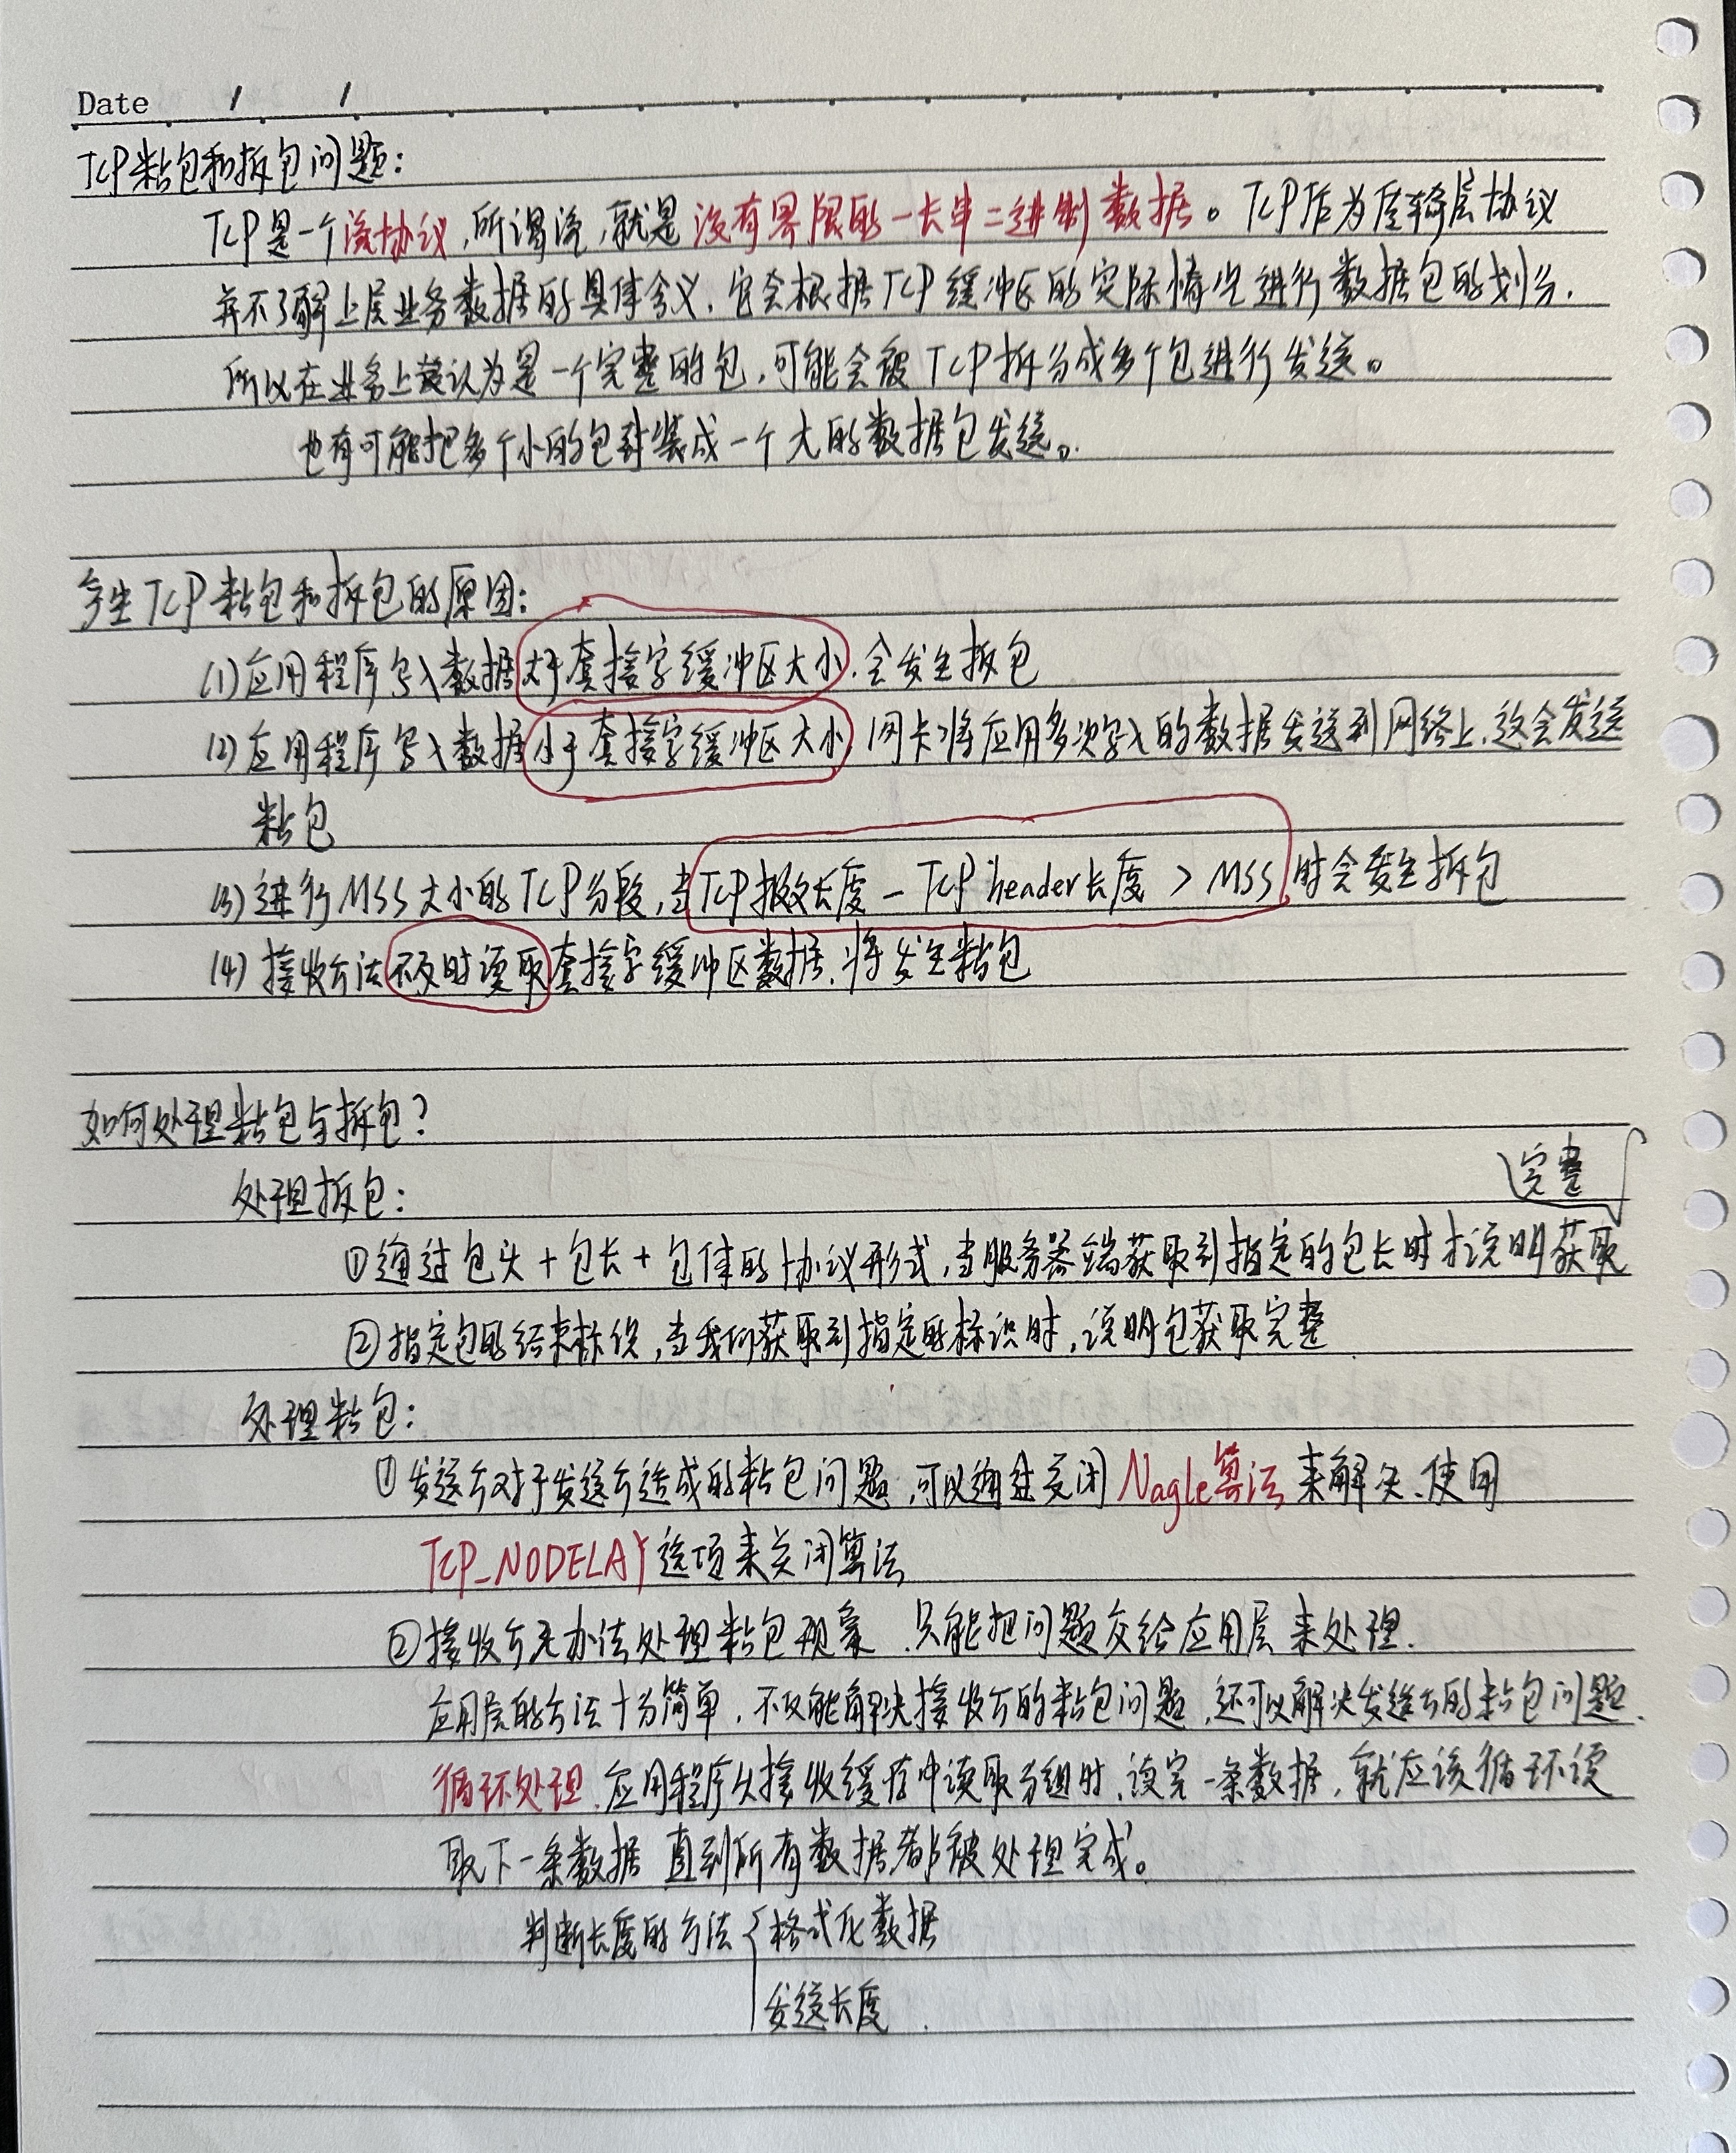 Date / /
TCP粘包和拆包问题:
TCP是一个流协议,所谓流,就是没有界限的一长串二进制数据。TCP作为传输层协议
并不了解上层业务数据的具体含义,它会根据TCP缓冲区的实际情况进行数据包的划分.
所以在业务上认为是一个完整的包,可能会被TCP拆分成多个包进行发送。
也有可能把多个小的包封装成一个大的数据包发送。
产生TCP粘包和拆包的原因:
(1)应用程序写入数据大于套接字缓冲区大小,会发生拆包
(2)应用程序写入数据小于套接字缓冲区大小,网卡将应用多次写入的数据发送到网络上,这会发送
粘包
(3)进行MSS大小的TCP分段,当TCP报文长度-TCP header长度>MSS时会发生拆包
(4)接收方法不及时读取套接字缓冲区数据,将发生粘包
如何处理粘包与拆包?
处理拆包:
完整
①通过包头+包长+包体的协议形式,当服务器端获取到指定的包长时才说明获取
②指定包的结束标识,当我们获取到指定的标识时,说明包获取完整
处理粘包:
①发送方对于发送方造成的粘包问题,可以通过关闭Nagle算法来解决,使用
TCP_NODELAY选项来关闭算法
②接收方无办法处理粘包现象,只能把问题交给应用层来处理.
应用层的方法十分简单,不仅能解决接收方的粘包问题,还可以解决发送方的粘包问题.
循环处理,应用程序从接收缓存中读取分组时,读完一条数据,就应该循环读
取下一条数据 直到所有数据都被处理完成。
判断长度的方法{格式化数据
发送长度.